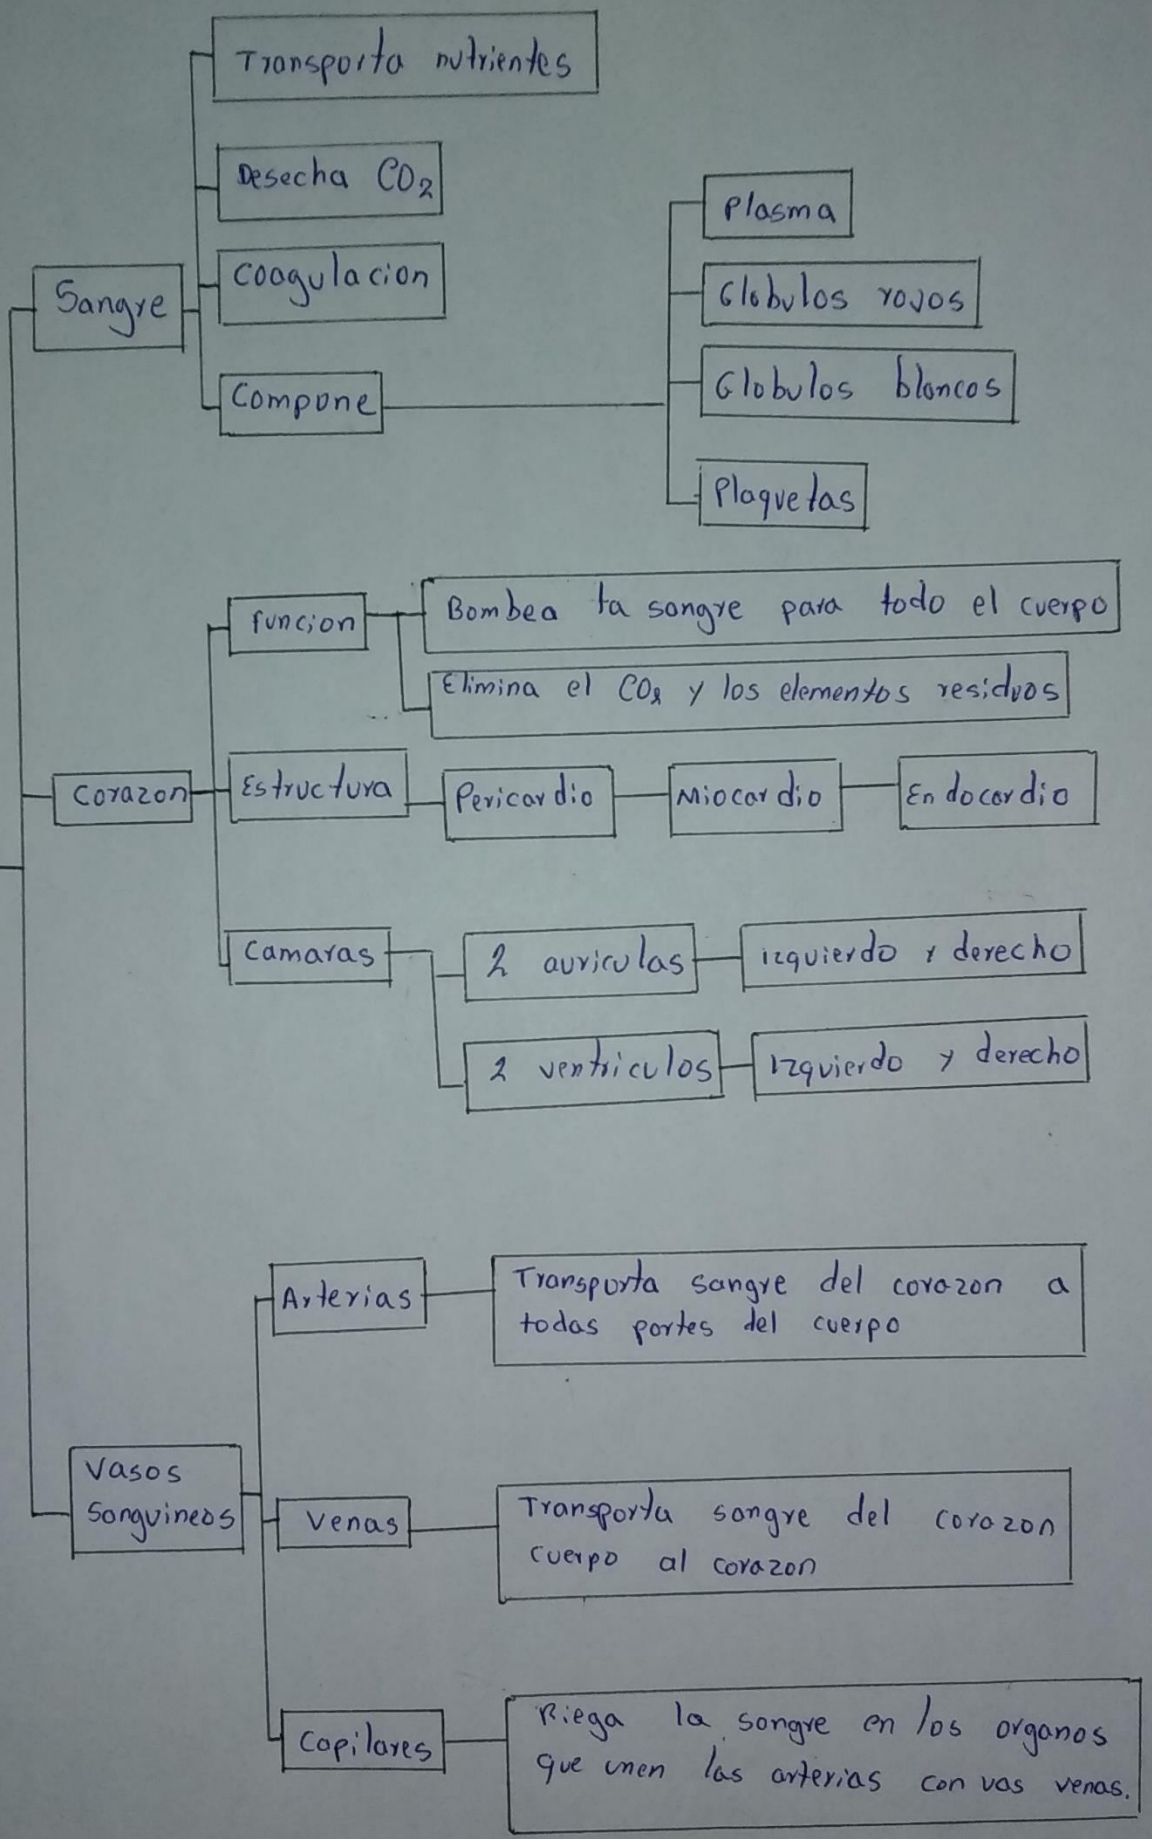 Transporta nutrientes
Desecha CO2
Coagulacion
Sangre
Compone
Plasma
Globulos rojos
Globulos blancos
Plaquetas
funcion
Bombea la sangre para todo el cuerpo
Elimina el CO2 y los elementos residuos
Corazon
Estructura
Pericardio
Miocardio
Endocardio
Camaras
2 auriculas
izquierdo y derecho
2 ventriculos
izquierdo y derecho
Arterias
Transporta sangre del corazon a
todas partes del cuerpo
Vasos
Sanguineos
Venas
Transporta sangre del corazon
cuerpo al corazon
Capilares
Riega la sangre en los organos
que unen las arterias con vas venas.